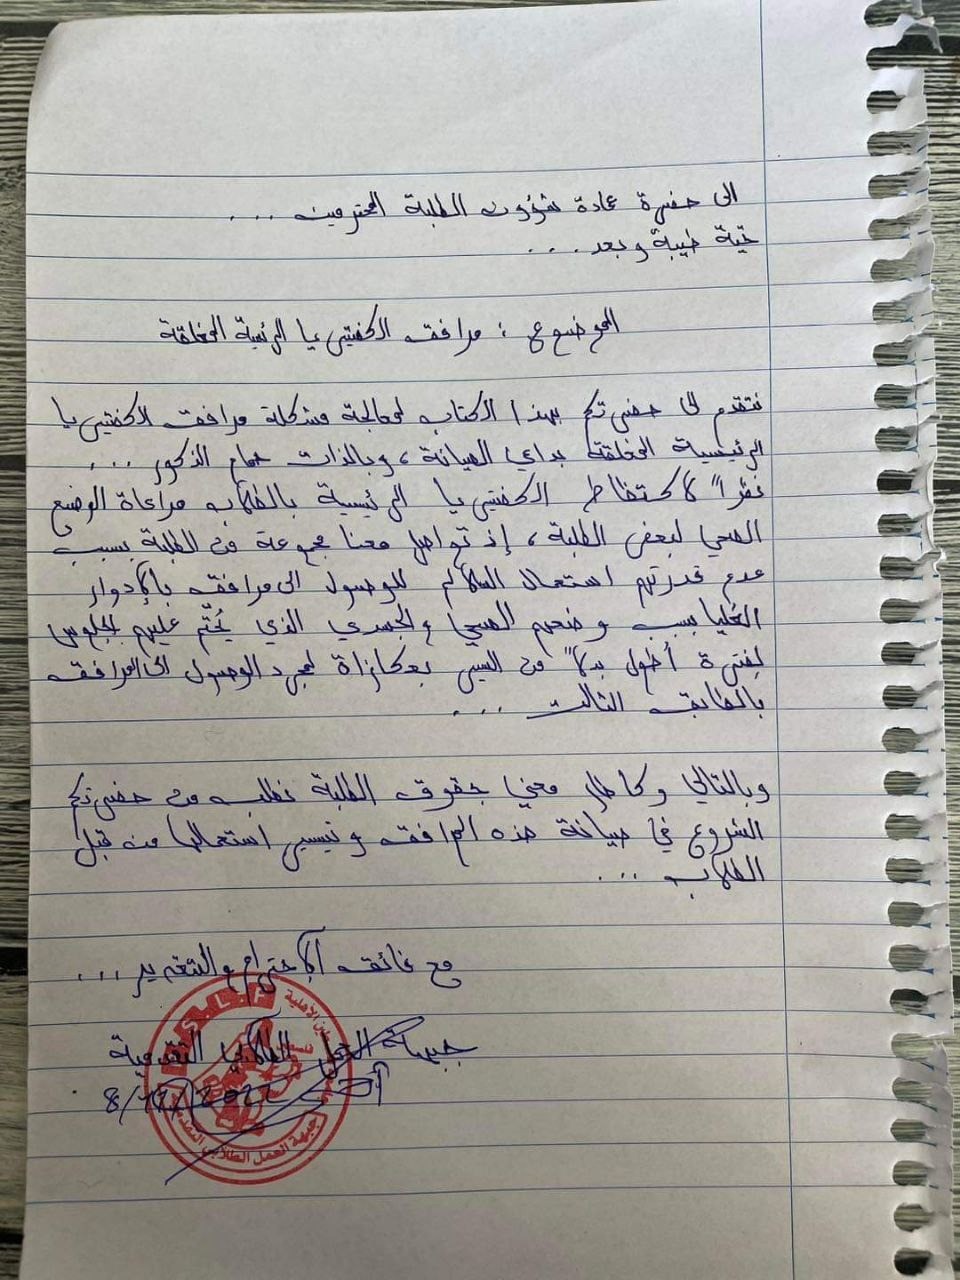 الى حضرة عمادة شؤون الطلبة المحترمين ...
تحية طيبة وبعد ...
الموضوع : مرافق الكفتيريا الرئيسية المغلقة
نتقدم الى حضرتكم بهذا الكتاب لمعالجة مشكلة مرافق الكفتيريا
الرئيسية المغلقة بداعي الصيانة ، وبالذات حمام الذكور ...
نظراً لاكتظاظ الكفتيريا الرئيسية بالطلاب مراعاة الوضع
الصحي لبعض الطلبة ، إذ تواصل معنا مجموعة من الطلبة بسبب
عدم قدرتهم استعمال السلالم للوصول الى مرافق بالأدوار
العليا بسبب وضعهم الصحي والجسدي الذي يُحتّم عليهم الجلوس
لفترة أطول بدلاً من السير بعكازاة لمجرد الوصول الى المرافق
بالطابق الثالث ...
وبالتالي وكإطار معني بحقوق الطلبة نطلب من حضرتكم
الشروع في صيانة هذه المرافق وتيسير استعمالها من قبل
الطلاب ...
مع فائق الاحترام والتقدير ...
جبهة العمل الطلابي التقدمية
8/12/2022
S.L.F
جبهة العمل الطلابي التقدمية